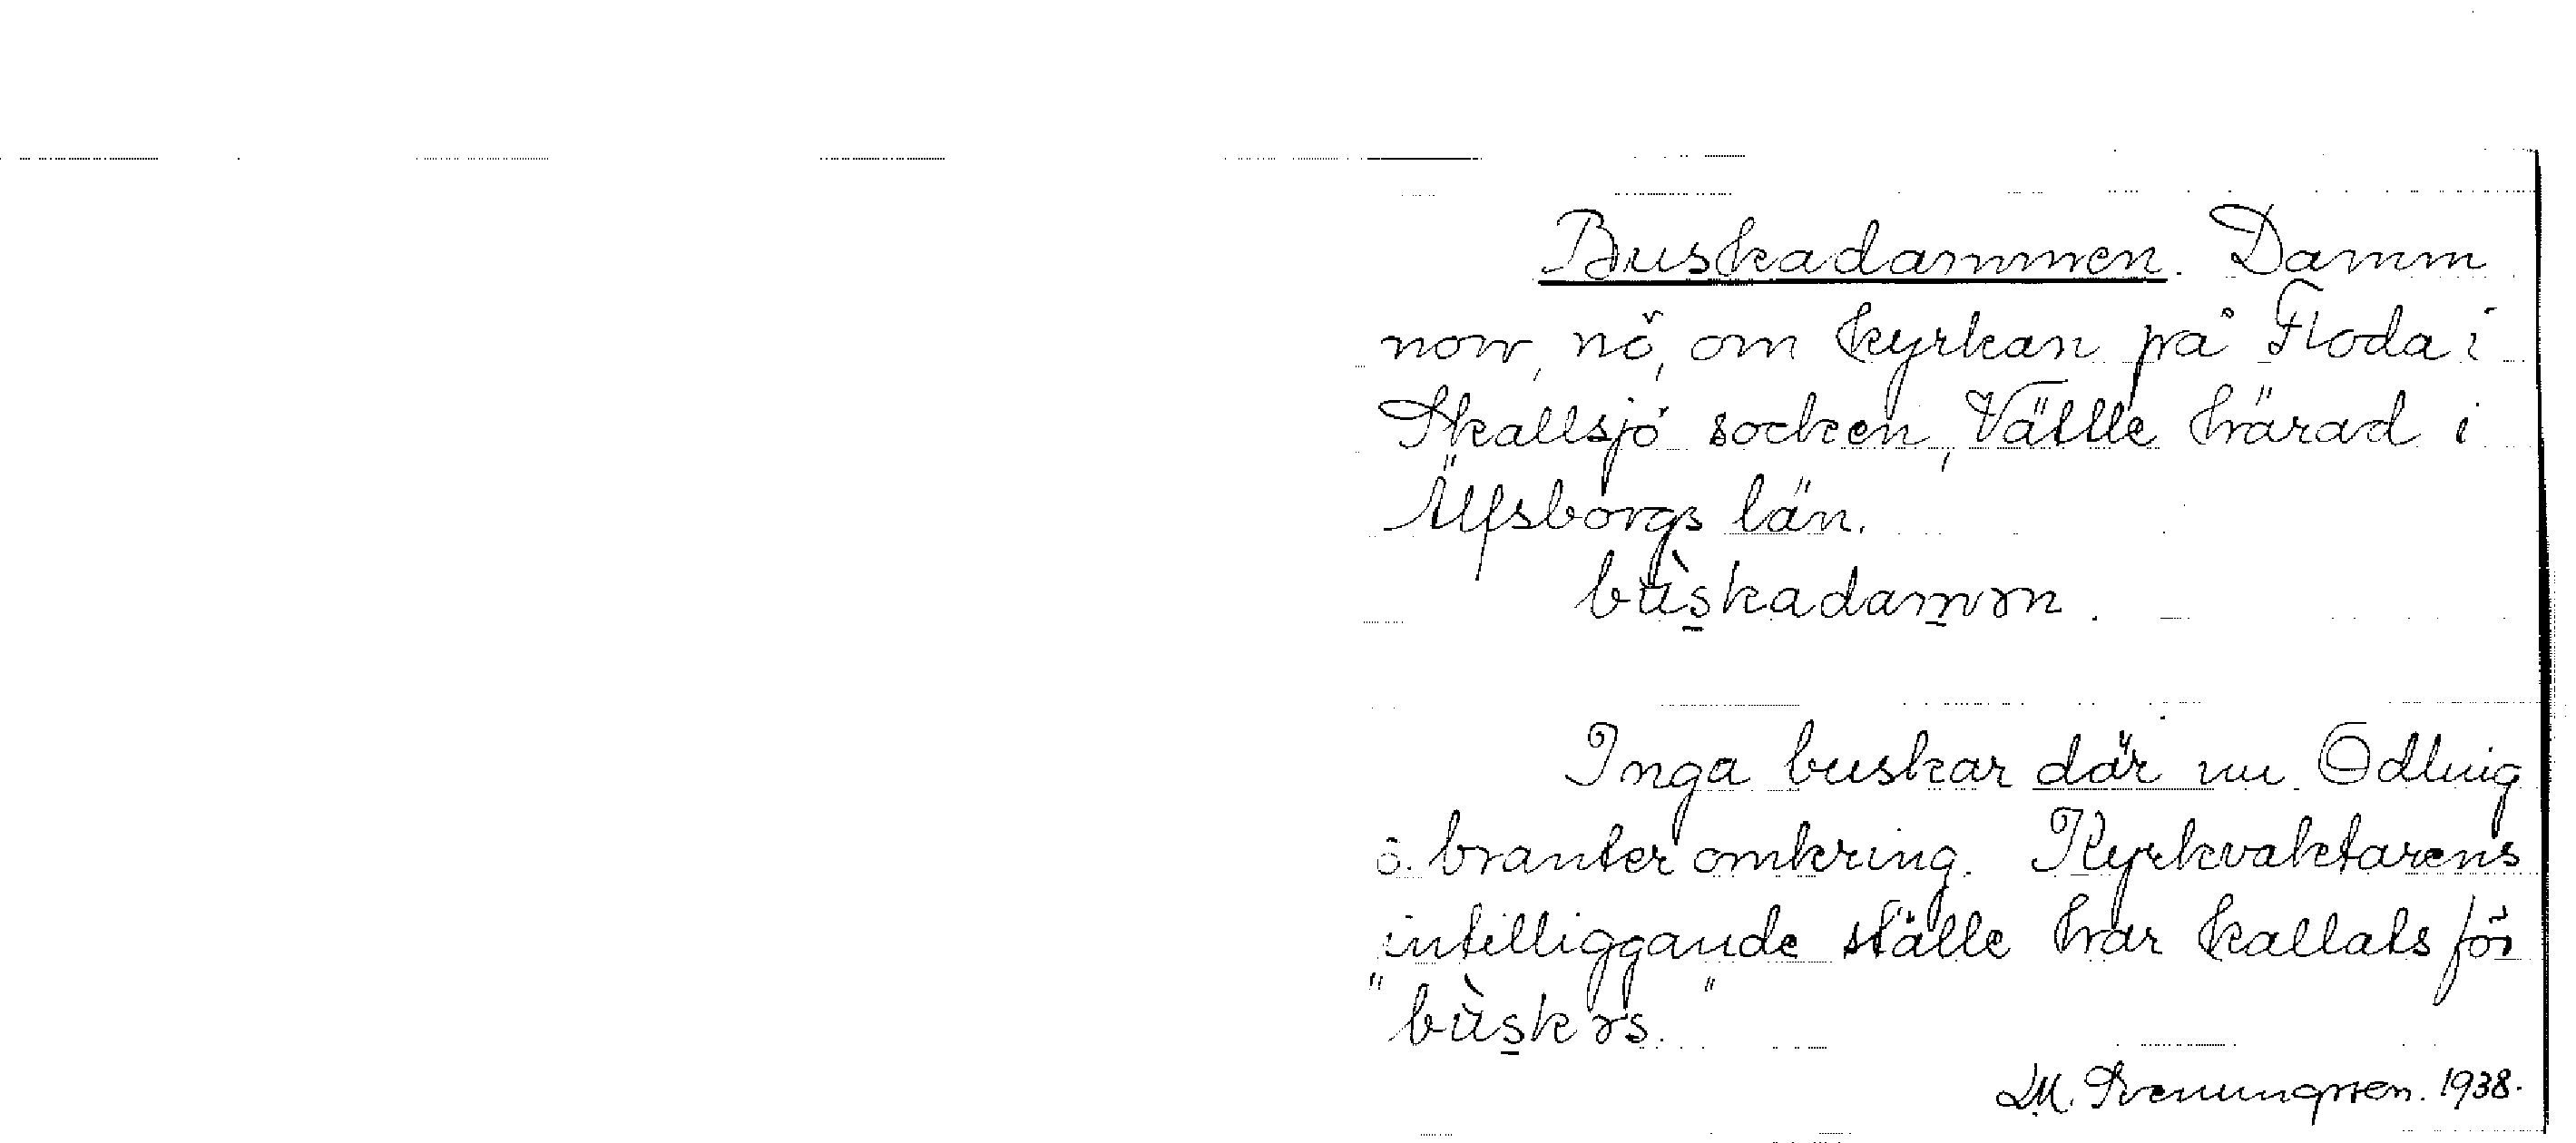 Buskadammen. Damm
norr, nö, om kyrkan på Floda i
Skallsjö socken, Vättle härad i
Älfsborgs län.
bùskadamən.
Inga buskar där nu. Odling
o. branter omkring. Kyrkvaktarens
intilliggande ställe har kallats för
"bùskəs."
D.M. Svenungsson. 1938.